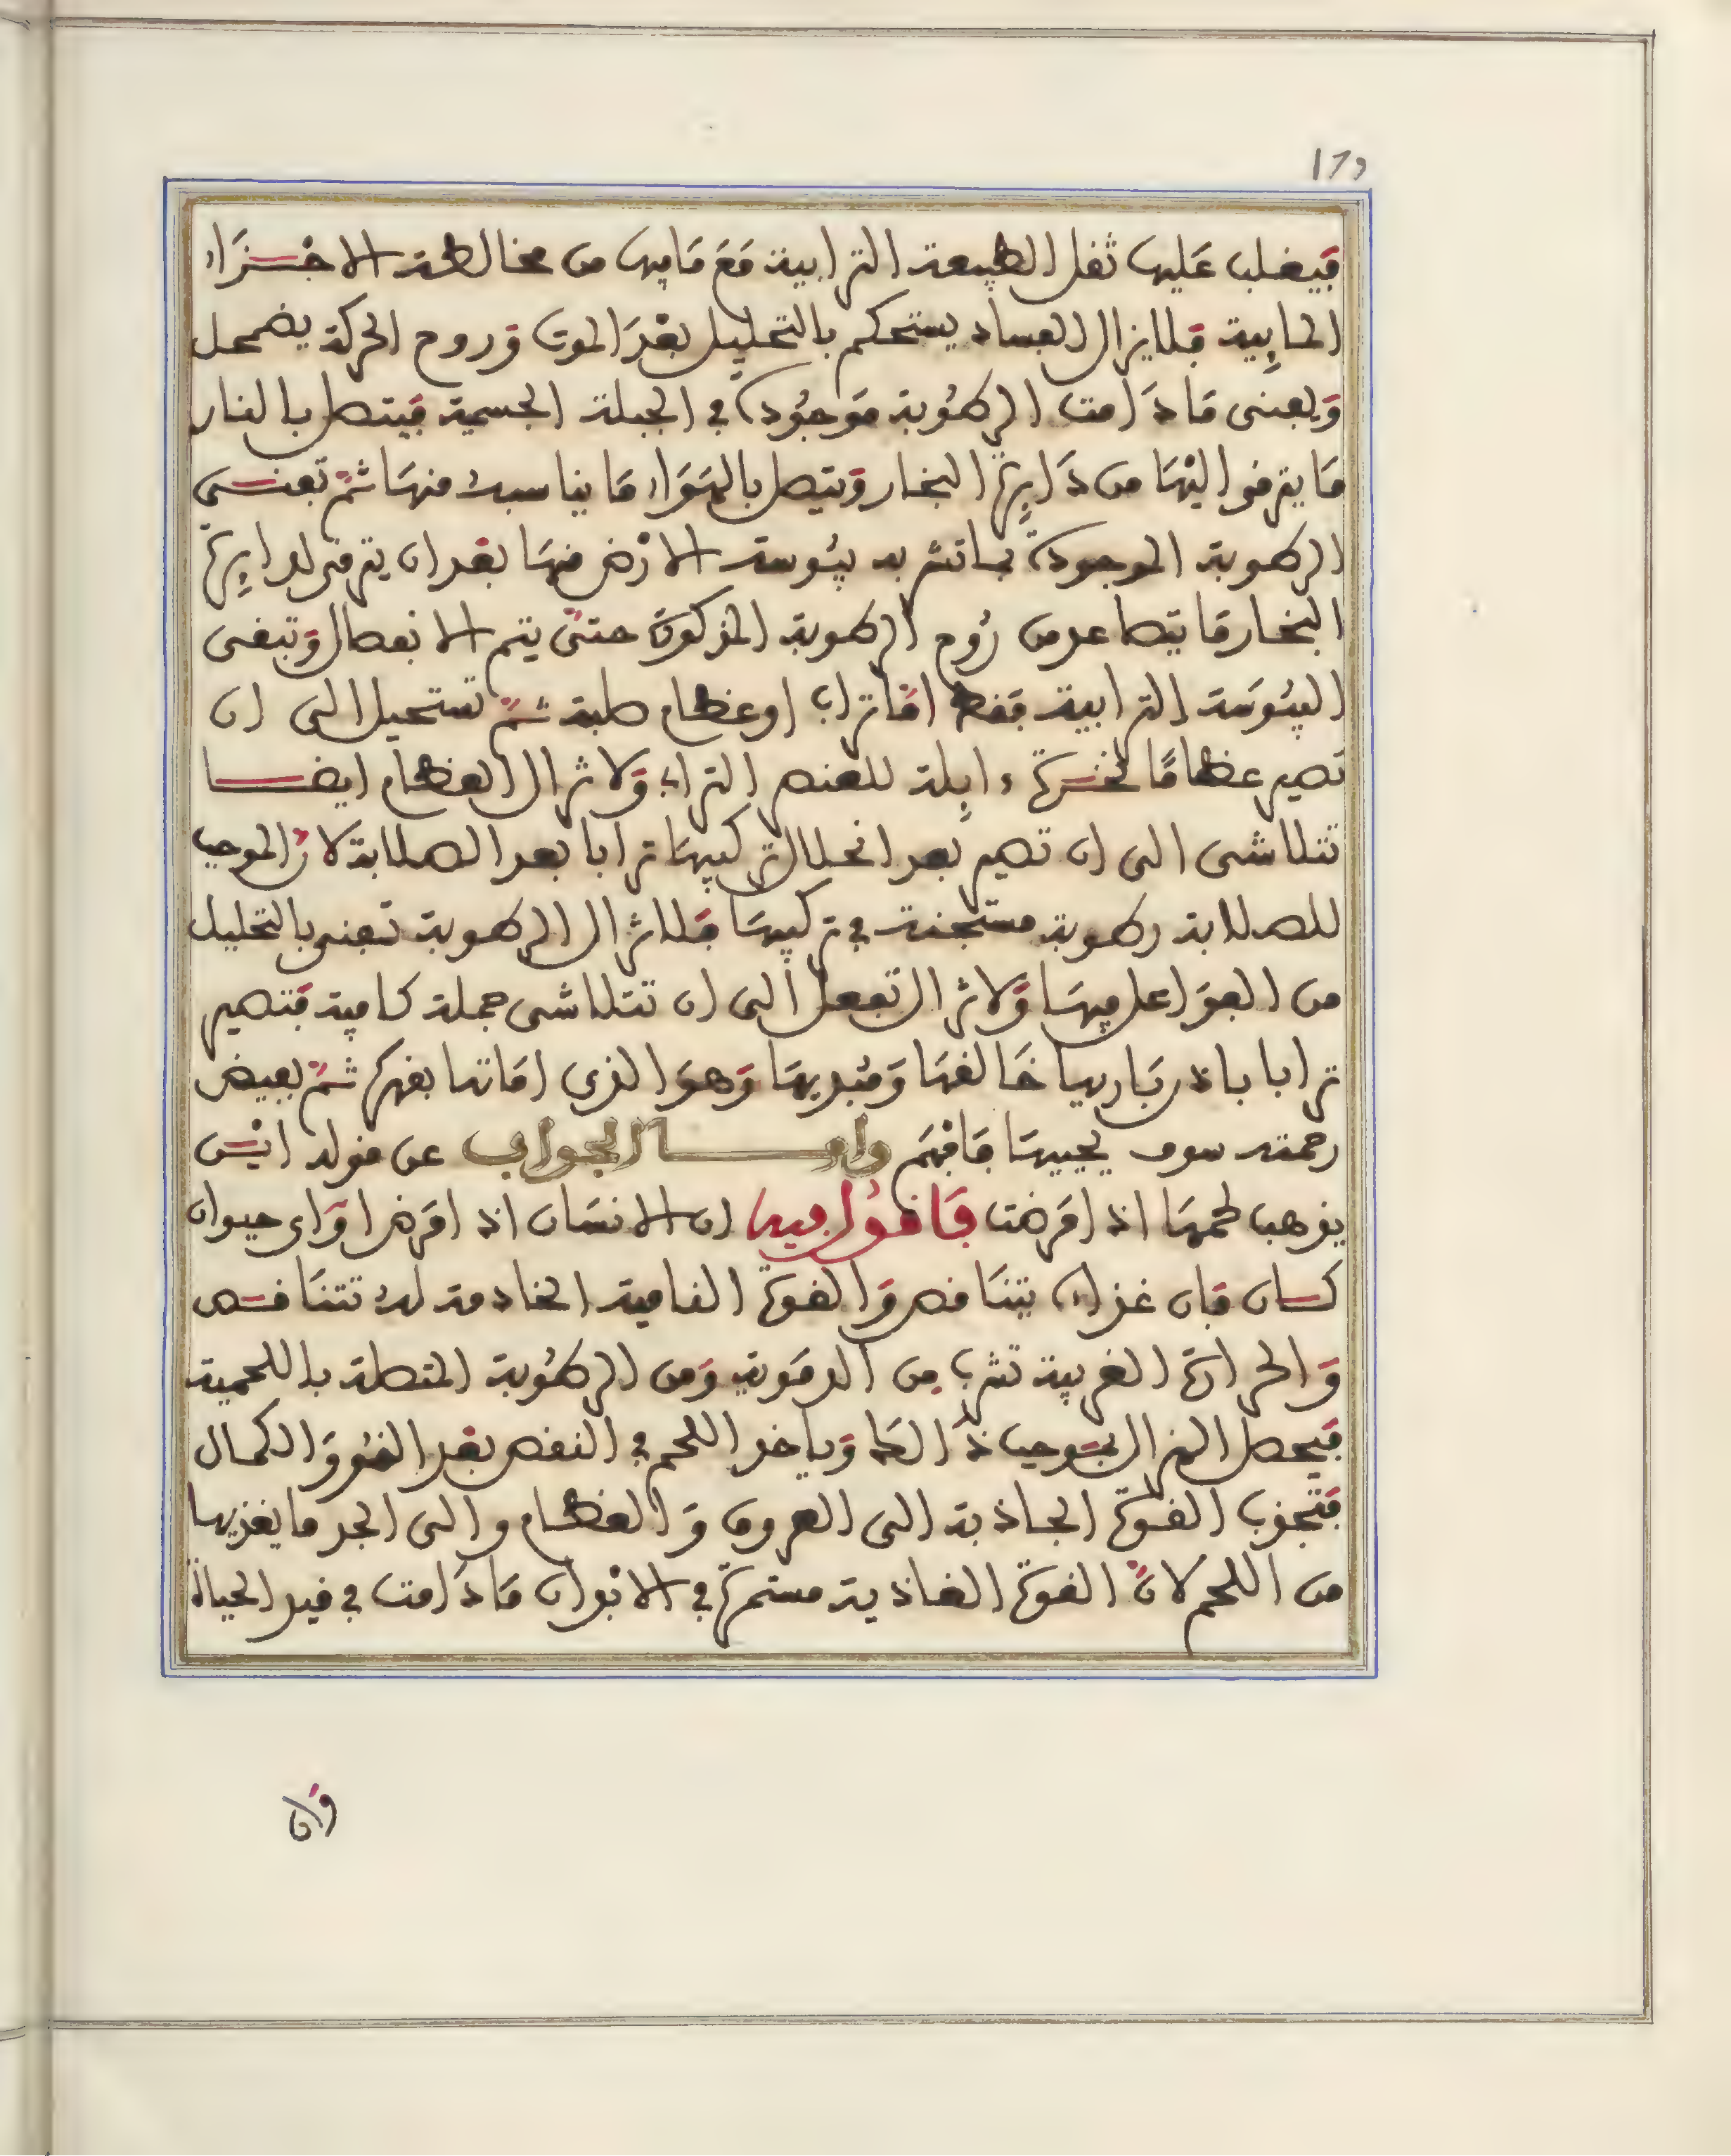 179
فيغلب عليه ثقل الطبيعة الترابية مَعَ مَا فيه من مخالطة الاجْزَاء
المايِية فلا يزال الفساد يستحكم بالتحليل بعْدَ الموت وَروح الحركة يضمحل
وَيفنى مَا دَامت الرطوبة مَوجُودة في الجبلة الجسمية فيتصل بالنار
مَا يترقوا اليْهَا من دَايِرة البخار وَيتصل بالهَوَاء مَا يناسبه منهَا ثمّ تفنى
الرطوبة الموجودة بما تشربه يبُوسة الارْض منهَا بعْد ان يترقى لدايِرة
البخار مَا يتصاعد من رُوح الرطوبة المذكورة حتىّ يتم الانفصال وَتبقى
اليبُوسَة الترابية فقط امّا تراب او عظام صلبة ثمّ تستحيل الى ان
تصير عظامًا نخرة ءايِلة للعنصر التراب وَلا تزال العظام ايضا
تتلاشى الى ان تصير بعد انحلال تركيبهَا ترابا بعد الصلابة لانّ الموجب
للصلابة رطوبة مستجنة في تركيبهَا فلا تزال الرطوبة تفنى بالتحليل
من الفوَاعل فيهَا وَلا تزال تفعل الى ان تتلاشى جملة كافية فتصير
ترابا باذن بَاريها خَالقهَا وَمُبديهَا وَهوَ الذي امَاتها بقهره ثمّ بفيض
رحمته سوف يحييهَا فافهَم وامــا الجواب عن قوله ايْش
يذهب لحمهَا اذا مَرضت فَاقُول فيه ان الانسَان اذا مَرض اوَ اي حيوان
كان فان غذاءه يتنَاقص وَالقوة النامية الخادمة له تتنَاقص
وَالحرارة الغريبة تشرب من الدمَوية وَمن الرطُوبة المتصلة باللحمية
فيحصل الهزال بمَوجب ذَالك وَياخذ اللحم في النقص بعْد النمُو وَالكمال
فتجذب القوة الجاذبة الى العروق وَالعظام والى الجلد ما يغذيها
من اللحم لانّ القوة الغاذية مستمرة في الابْدان مَا دَامت في قيد الحياة
وَان